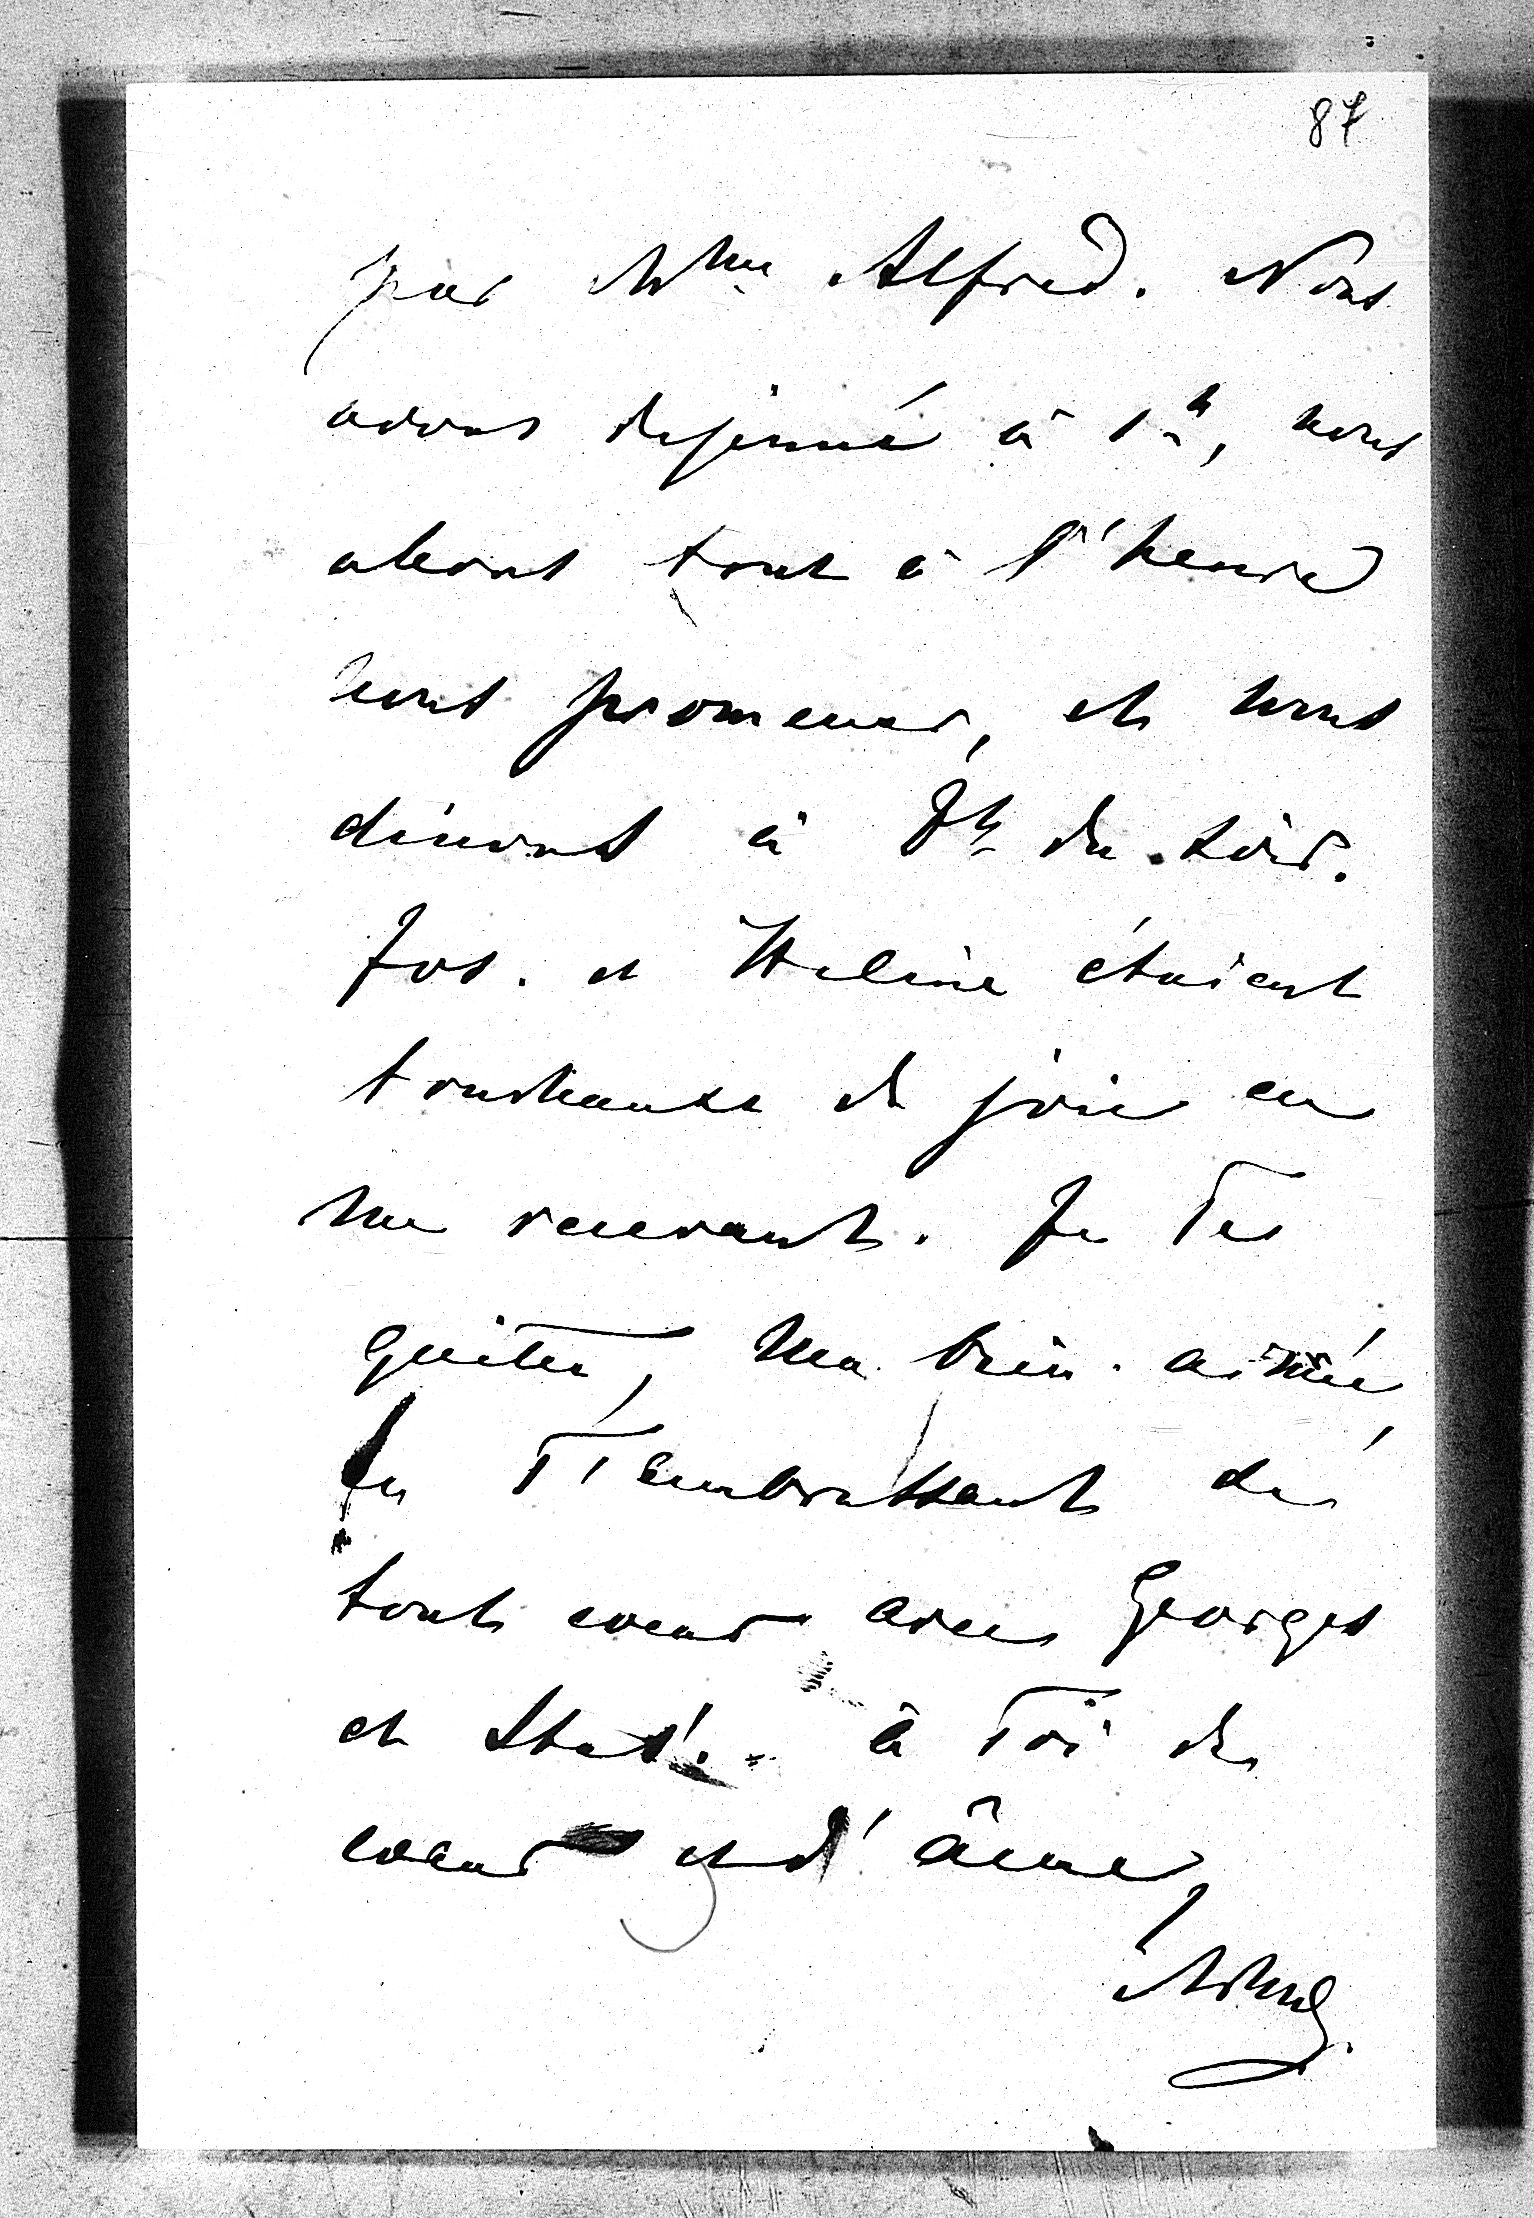 87
par Mme Alfred. Nous
avons dejeuné à 1h, nous
alons tout à l'heure
nous promener, et nous
dinons à 8h du soir.
Jos. et Heline étaient
touchante de joie en
me revevant. Je Te
quitte, Ma bien-aimée,
en T'embrassant de
tout coeur avec Georges
et Stas!. à Toi de
coeur et d'âme,